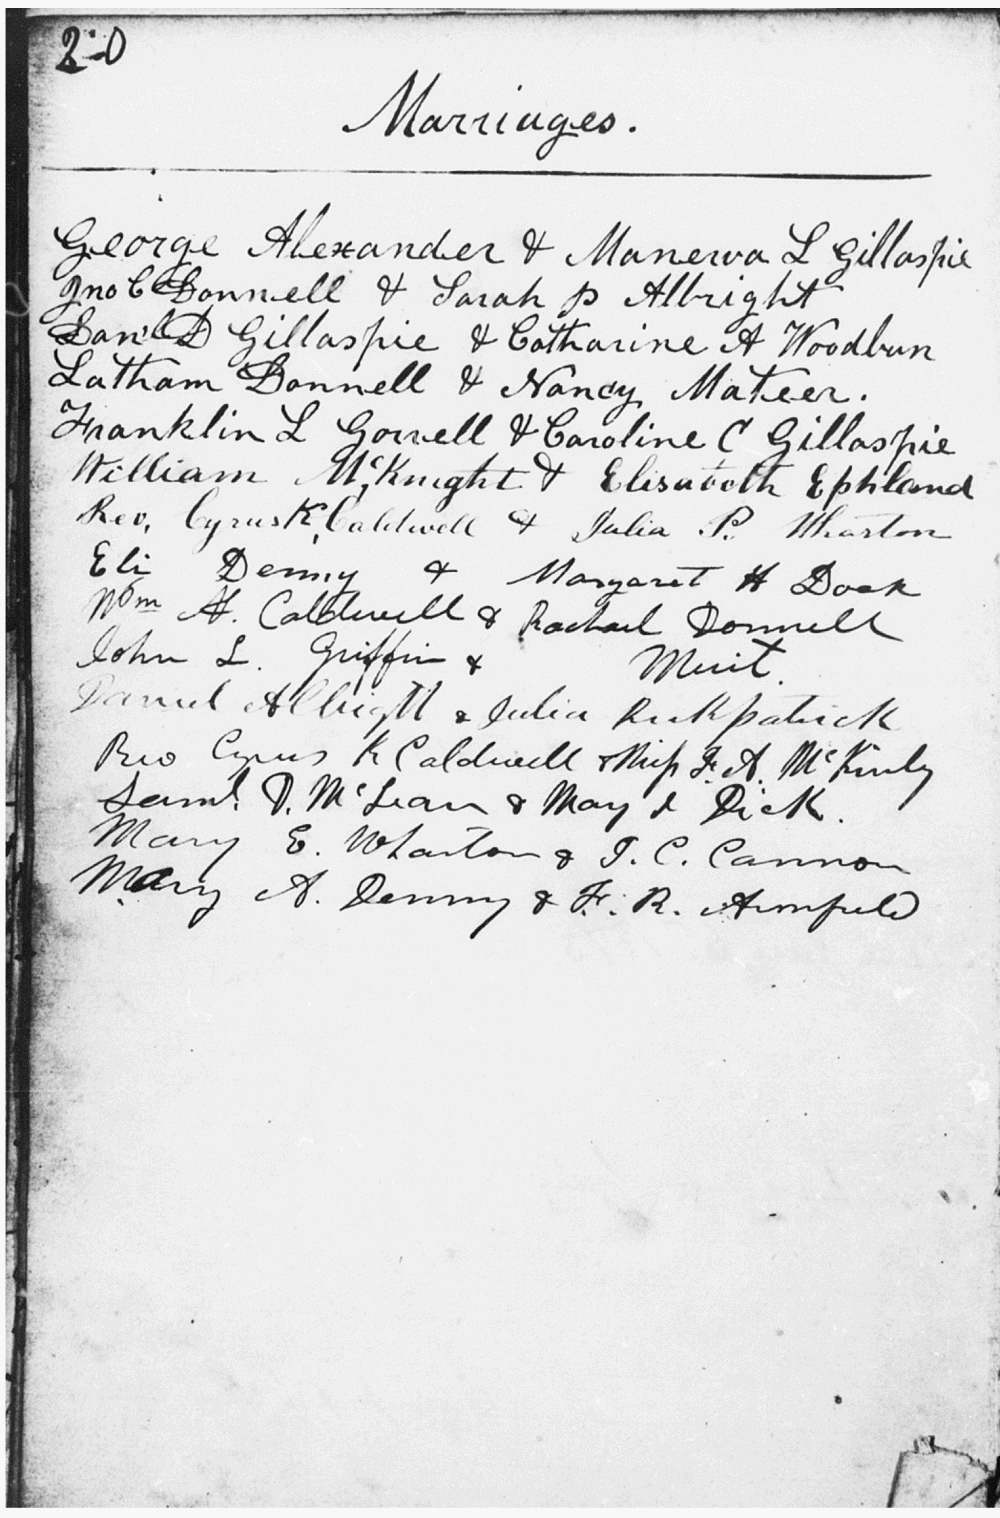 20
Marriages.
George Alexander & Manerva L Gillaspie
Jno C Donnell & Sarah P Albright
Danl D Gillaspie & Catharine A Woodburn
Latham Donnell & Nancy Mateer.
Franklin L Gorrell & Caroline C Gillaspie
William McKnight & Elisabeth Ephland
Rev. Cyrus K. Caldwell & Julia P. Wharton
Eli Denny & Margaret H Doak
Wm A. Caldwell & Rachael Donnell
John L. Griffin &
Daniel Albright & Julia Kirkpatrick
Rev Cyrus K Caldwell & Miss F. A. McKinly
Saml. D. McLean & May Dick.
Mary E. Wharton & J. C. Cannon
Mary A. Denny & F. R. Armfield